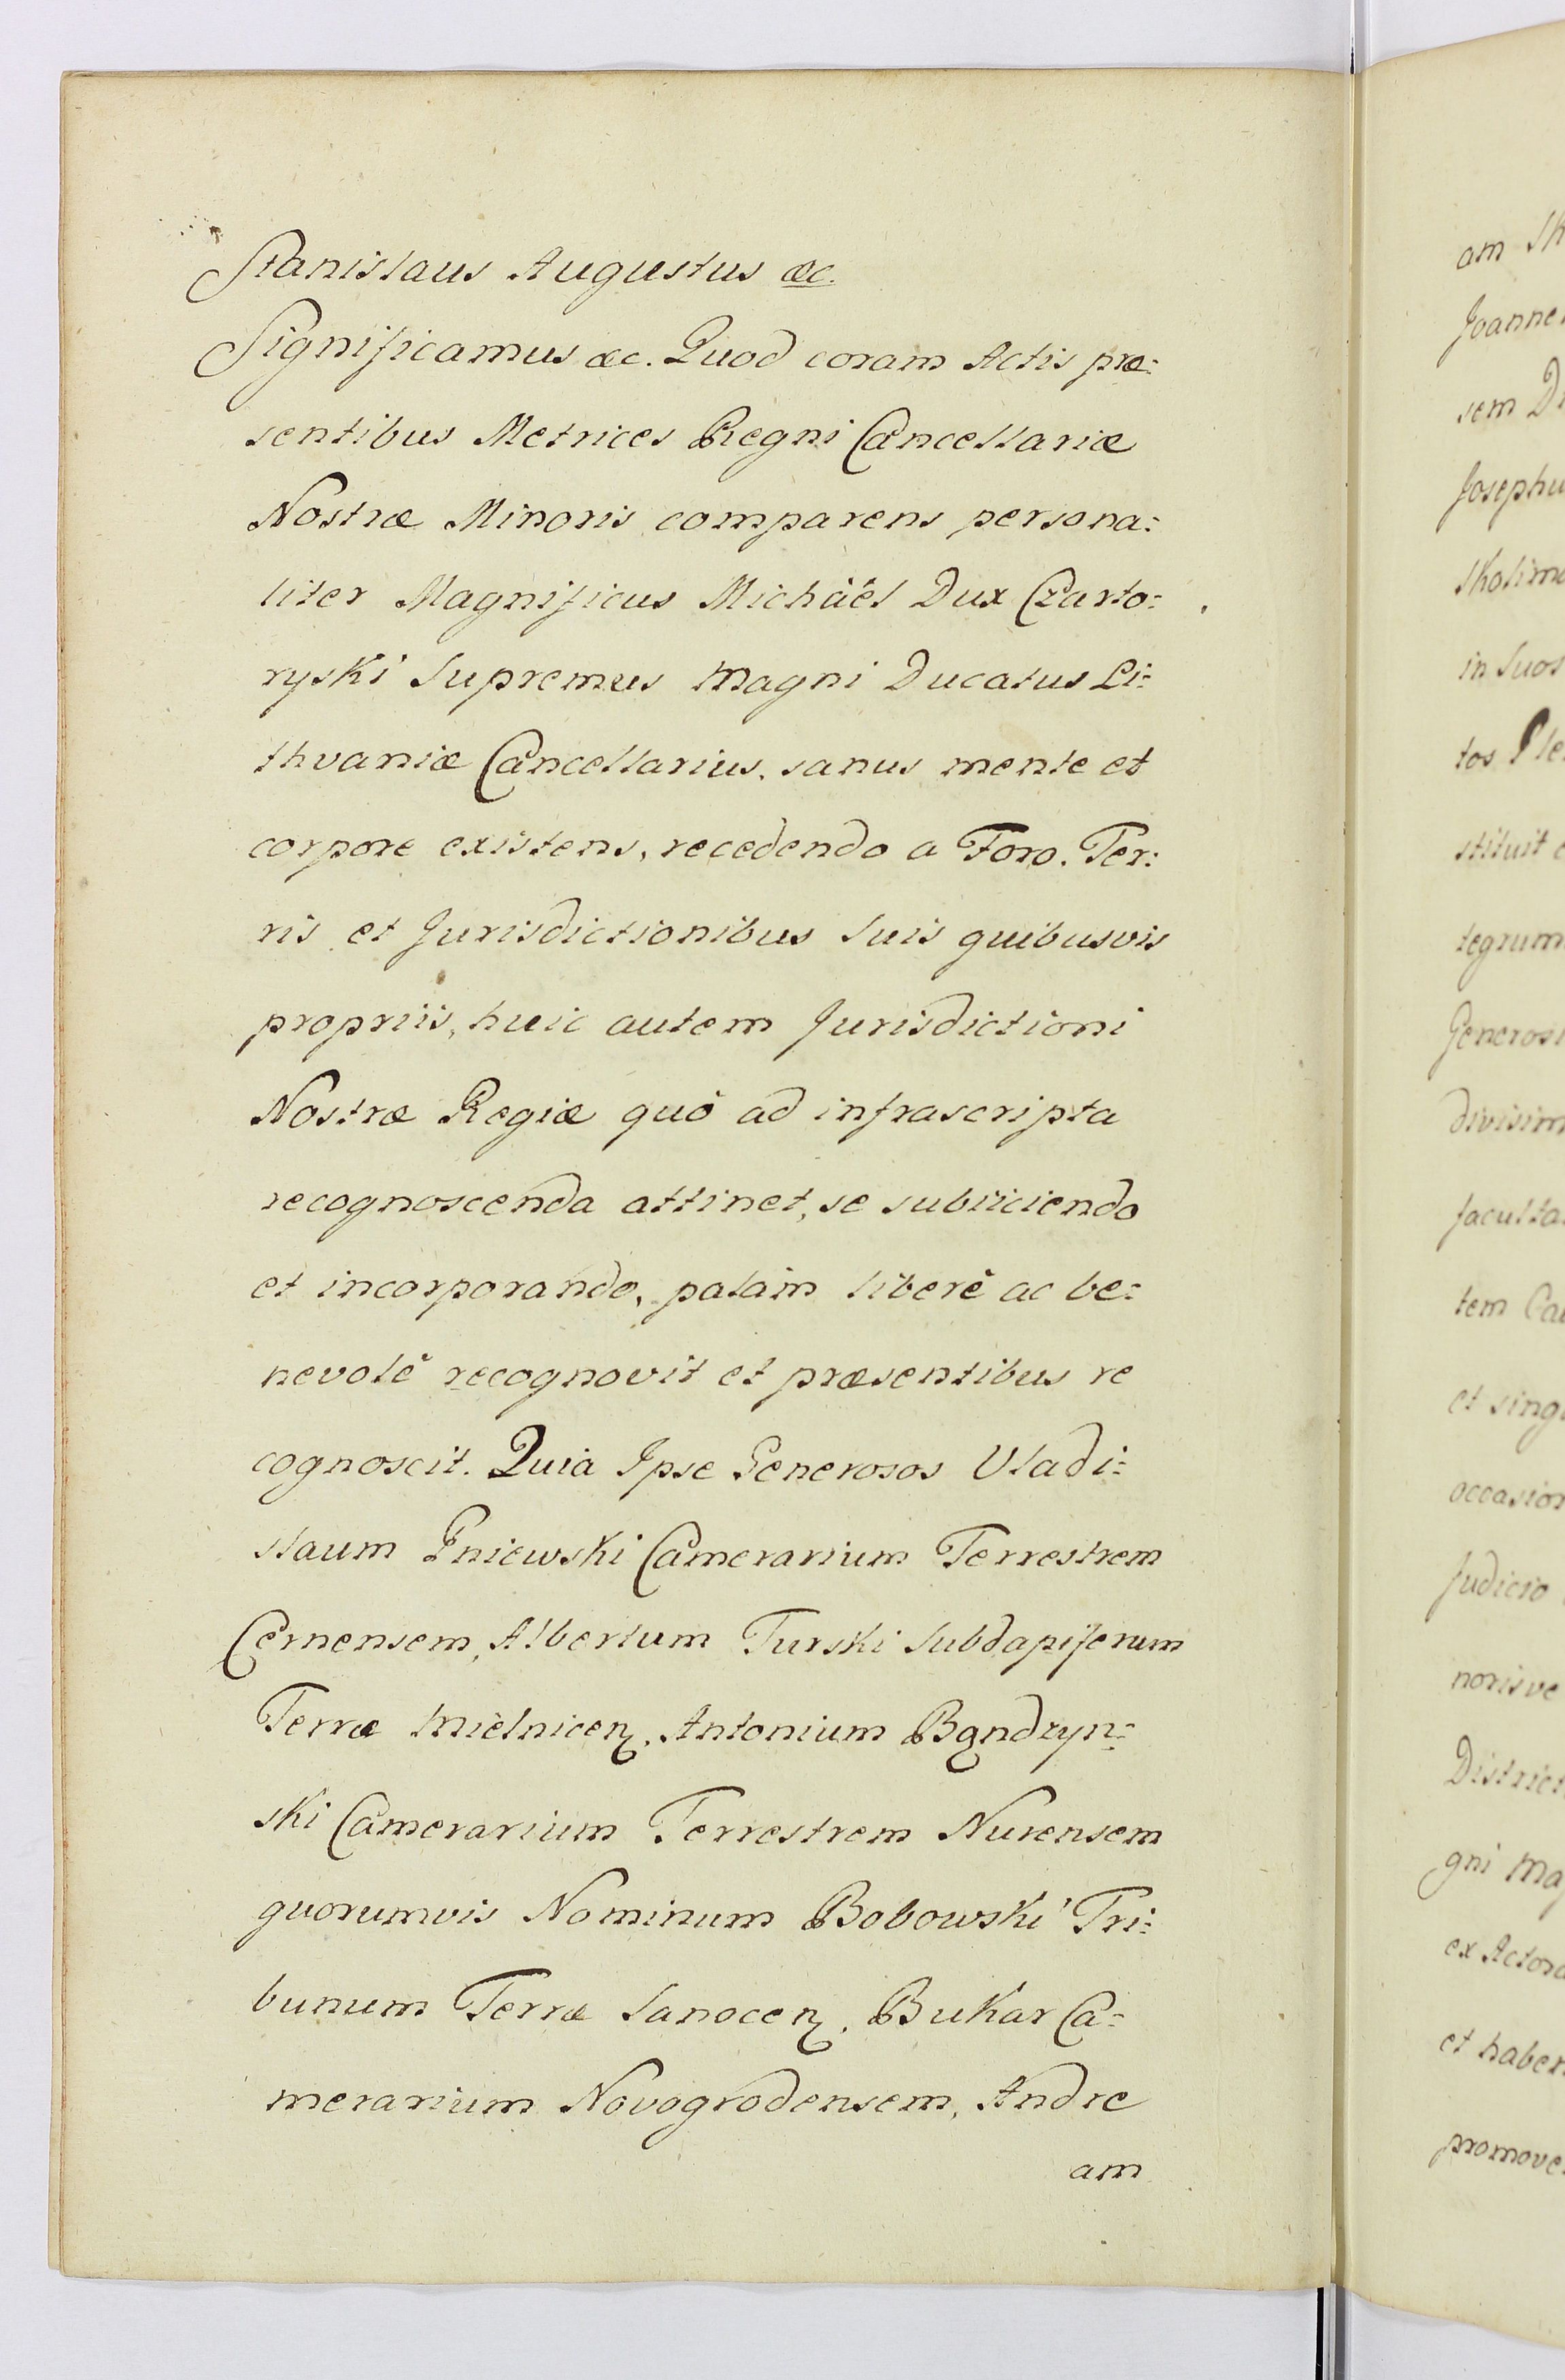 Stanislaus Augustus &c.
Significamus &c. Quod coram Actis præ:
sentibus Metrices Regni Cancellariæ
Nostræ Minoris comparens persona:
liter Magnificus Michäel Dux Czarto:
ryski Supremus Magni Ducatus Li:
thvaniæ Cancellarius, sanus mente et
corpore existens, recedendo a Foro, Ter:
ris et Jurisdictionibus Suis quibusvis
propriis, huic autem Jurisdictioni
Nostræ Regiæ quò ad infrascripta
recognoscenda attinet, se subiiciendo
et incorporando, palàm liberè ac be:
nevolè recognovit et præsentibus re
cognoscit. Quia Ipse Generosos Vladi:
slaum Gniewski Camerarium Terrestrem
Cernensem, Albertum Turski Subdapiferum
Terræ Mielnicen, Antonium Bądzyn:
ski Camerarium Terrestrem Nurensem
quorumvis Nominum Bobowski Tri:
bunum Terræ Sanocen, Bukar Ca:
merarium Novogrodensem, Andre
am
am
Joanne
sem
Josephu
Skolim
in Suos
tos Ple
stituit
tegrum
Generosi
divisim
faculta
tem
et sing
occasion
Judicio
norisve
District
gni Ma
ex Actor
et haben
promove